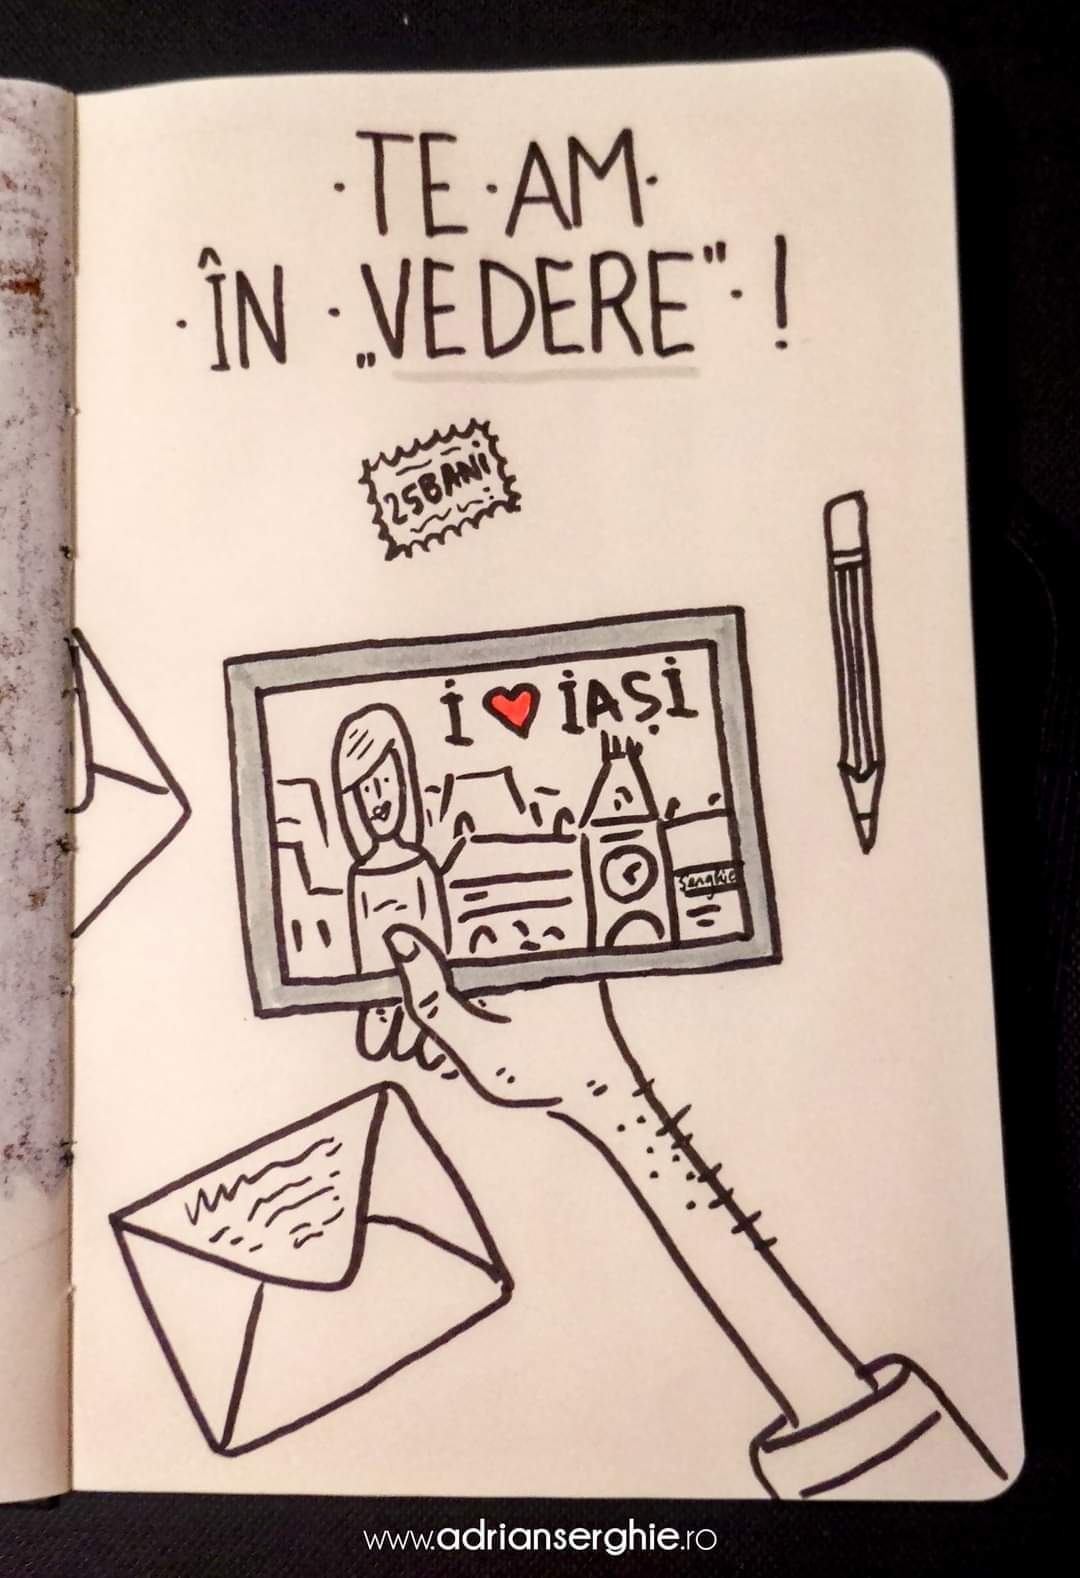 ·TE·AM·
·ÎN·„VEDERE”·!
25BANi
İ ♥ İAȘİ
Serghie
www.adrianserghie.ro